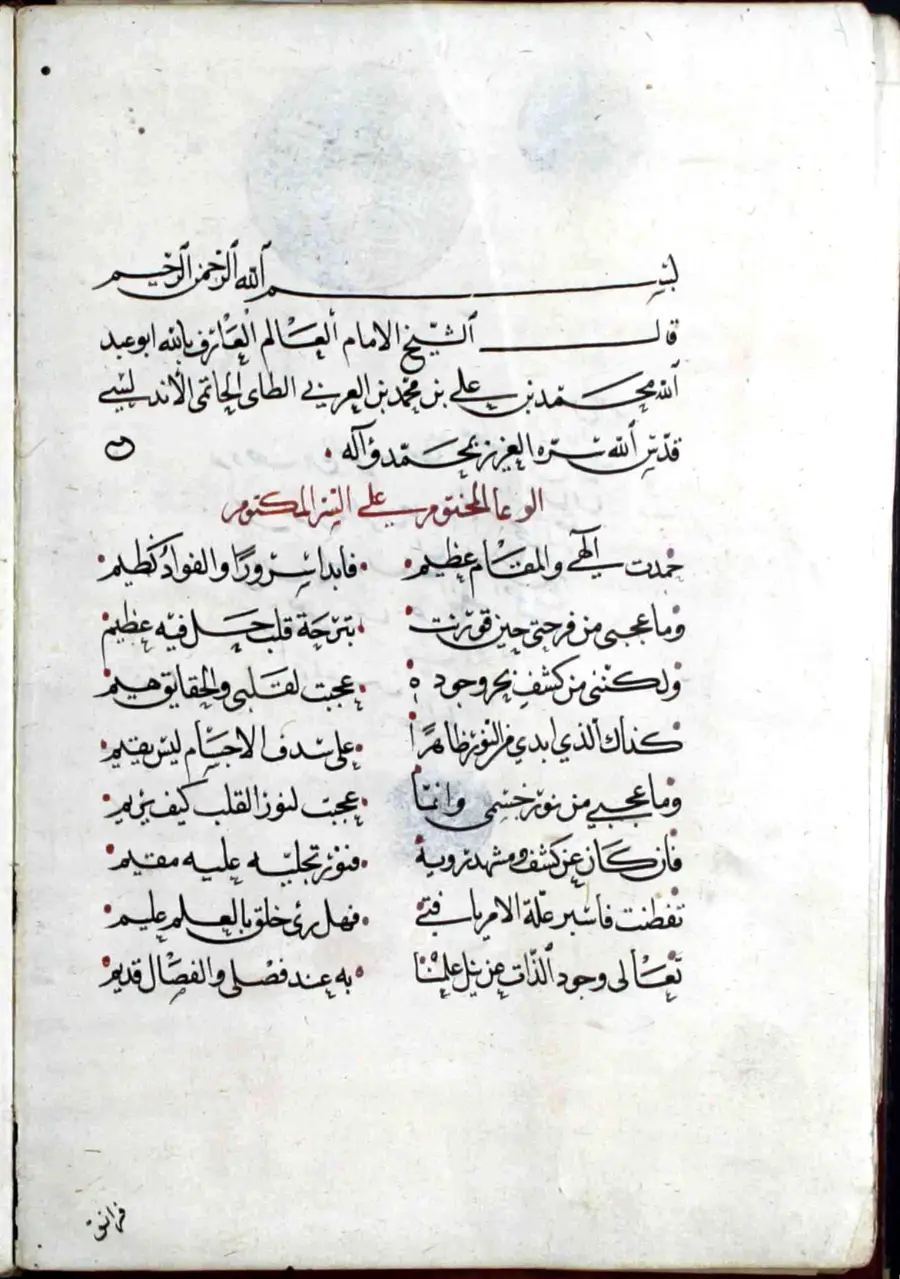 بسم الله الرحمن الرحيم
قال الشيخ الامام العالم العارف بالله ابو عبد
الله محمد بن علي بن محمد بن العربي الطاى الحاتمى الاندلسي
قدس الله سره العزيز بمحمد وآله
الوعا المختوم على السر المكتوم
حمدت الهي والمقام عظيم فابدا سرورًا والفواد كظيم
وما عجبى من فرحتى حين قورنت بترحة قلب حل فيه عظيم
ولكننى من كشف بحر وجوده عجبت لقلبى والحقايق هيم
كذاك الذي ابدي من النور ظاهرًا على سدف الاجسام ليس يقيم
وما عجبي من نور جسمى وانما عجبت لنور القلب كيف يريم
فان كان عن كشف ومشهد روية فنور تجليه عليه مقيم
تفطنت فاستر علة الامر يا فتي فهل رئ خلق بالعلم عليم
تعالى وجود الذات عن نيل علمنا به عند فصلى والفصال قديم